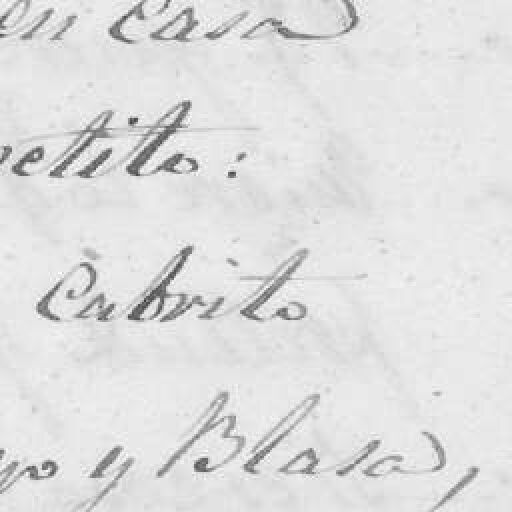 en casa
petito:
Cabrito
yo y Blasa,